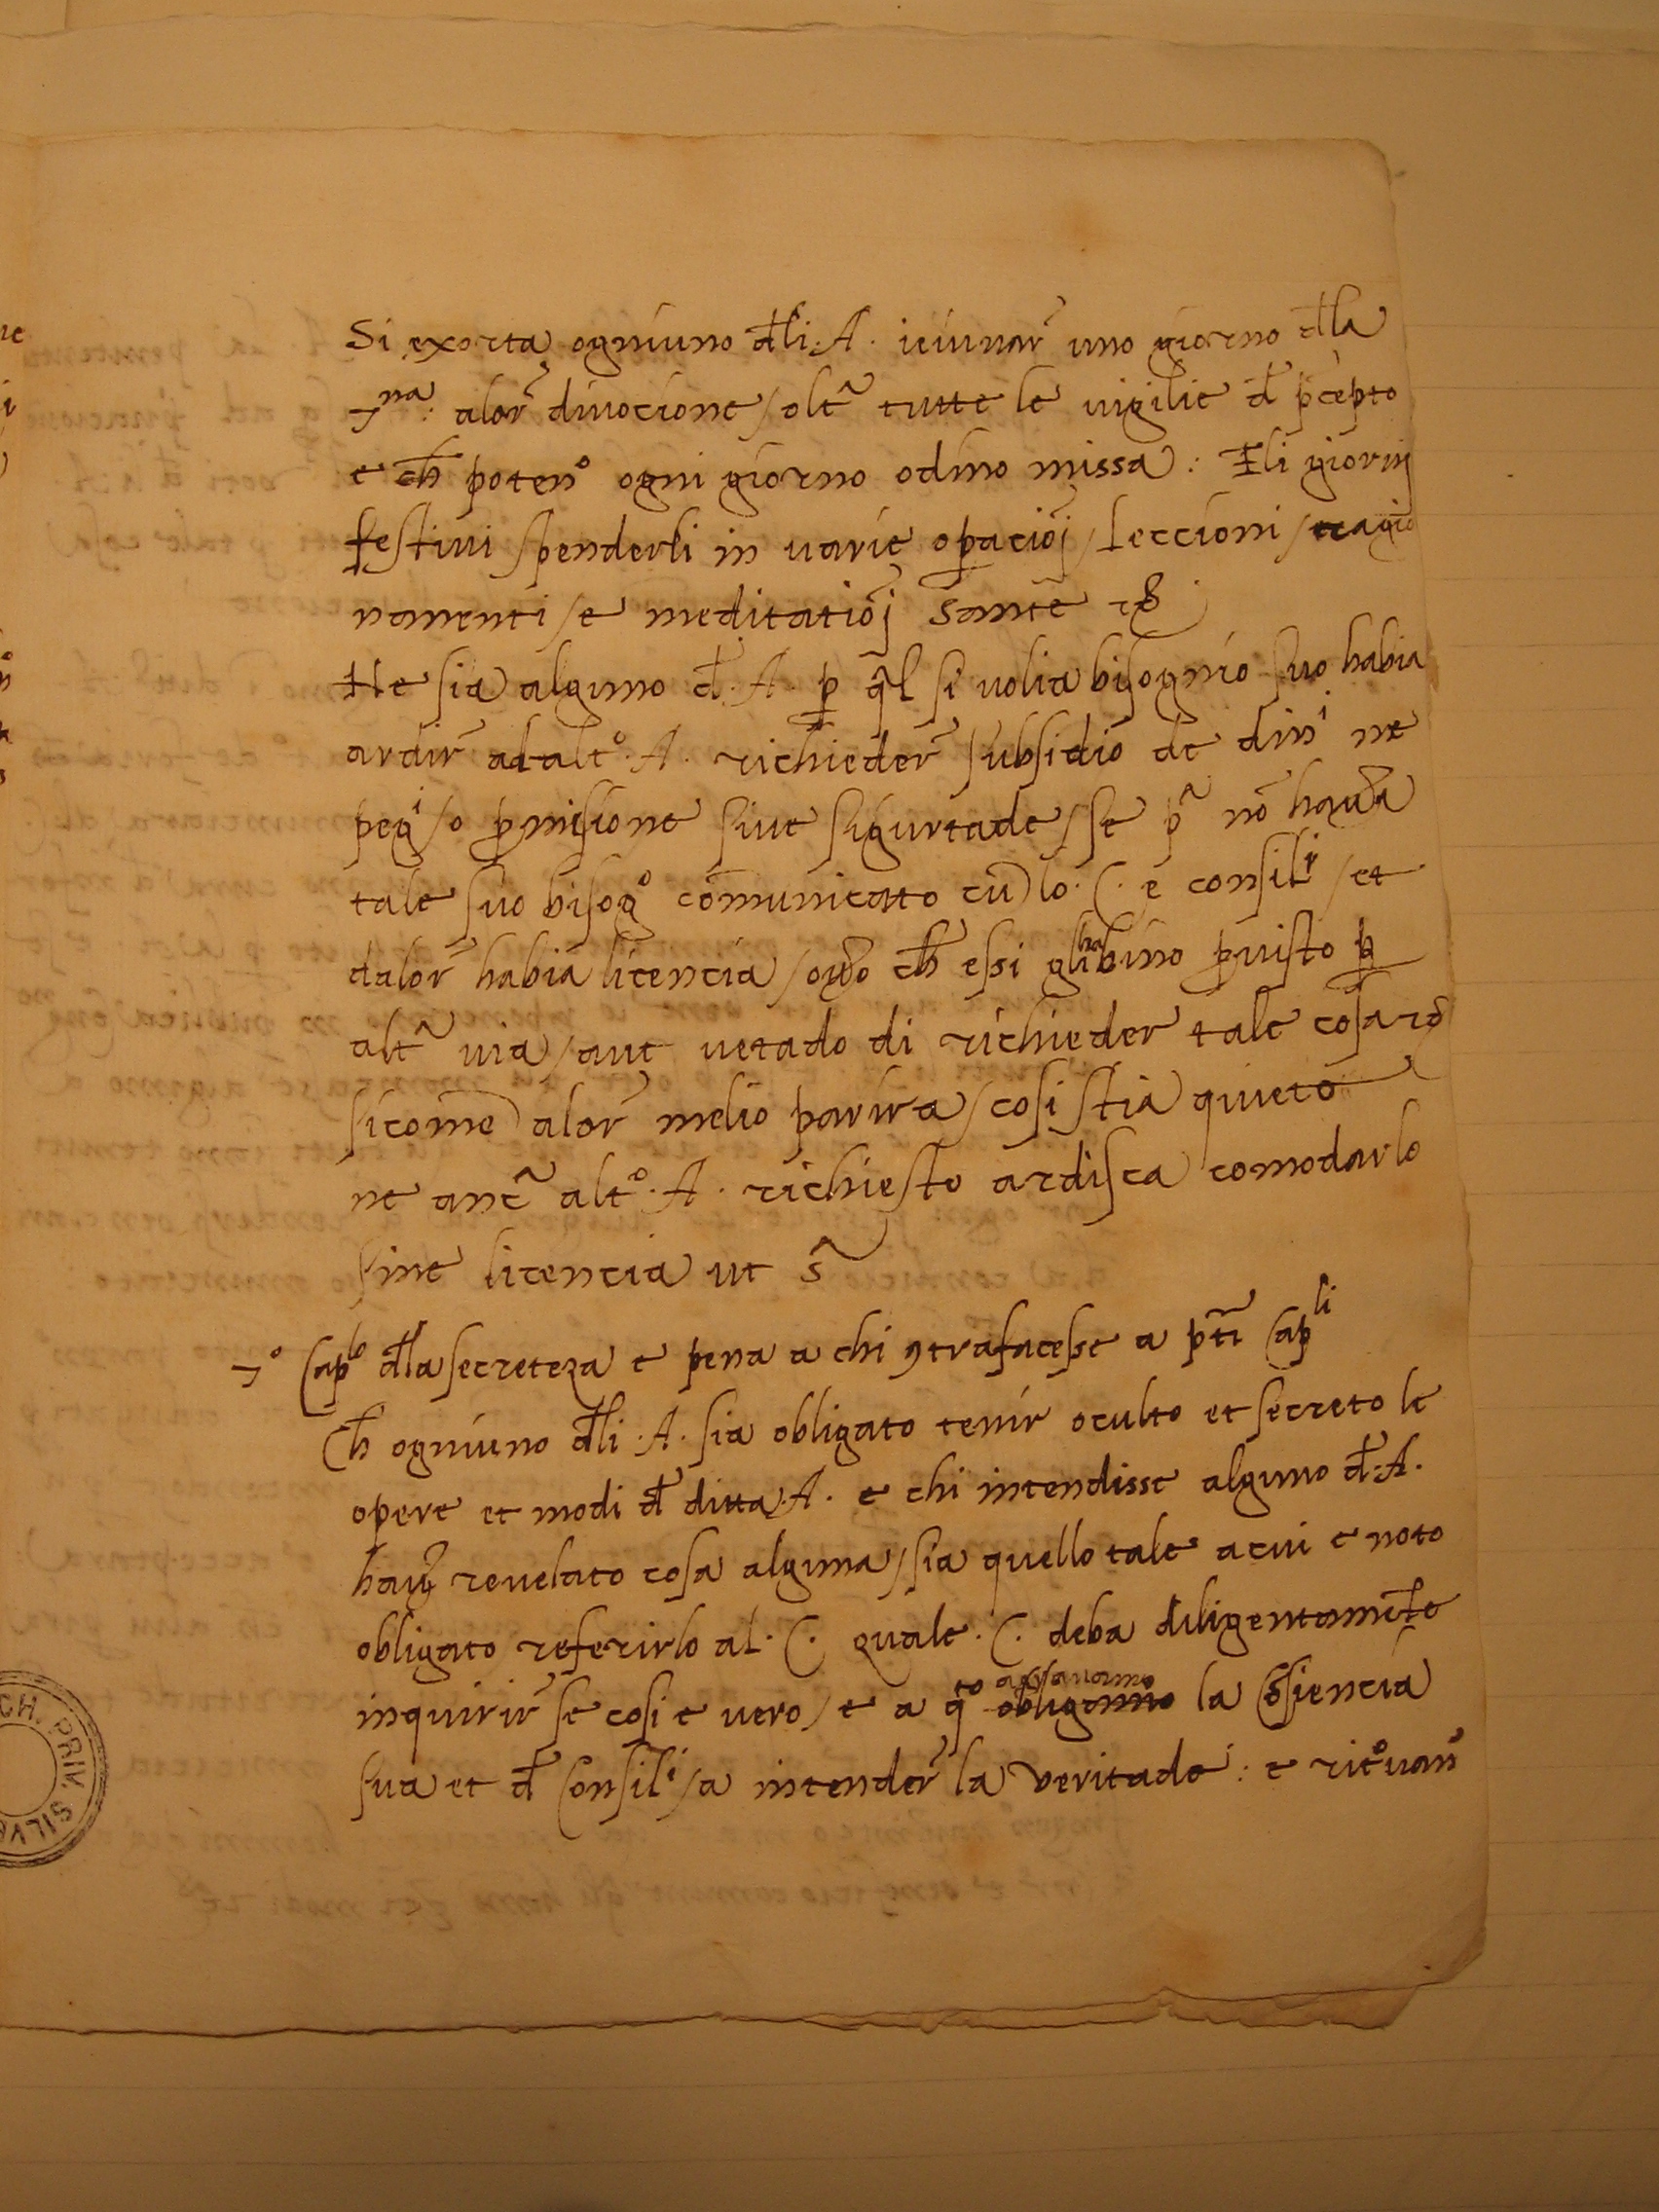 Si exorta ogniuno dli .A. ieiunar uno giorno dla
7na: alor diuocione / oltã tutte le uigilie d pcepto
e ch poteno ogni giorno odino missa : Eli giorni
festiui spenderli in uarie opacioj / Leccioni / ragio
namenti / e meditatioj sante
Ne sia alguno d .A. p ql si uolia bisognio suo habia
ardir ad alto .A. richieder subsidio de dini ne
pegi / o pmisione siue sigurtade / se pã nō hauera
tale suo bisogo comunicato cū lo .C. e consili / et
dalor habia licencia / ouero ch essi gli habino puisto p
altã uia / aut uetado di richieder tale cosa
sicome alor melio parira / cosi stia quieto
ne ancã alto .A. richiesto ardisca comodarlo
sine licencia ut sã
7o Caplo dla secreteza e pena a chi 9trafacesse a pti Capli
Ch ogniuno dli .A. sia obligato tenir oculto et secreto le
opere et modi d ditta .A. e chi intendisse alguno d .A.
hauer reuelato cosa alguna / sia quello tale a cui e noto
obligato referirlo al .C. quale .C. deba diligentamēte
inquirir se cosi e uero / e a qto agrauamo obligamo la cōsiencia
sua et d Consili / a intender la veritade : e ritouan
CH. PRIV. SILV